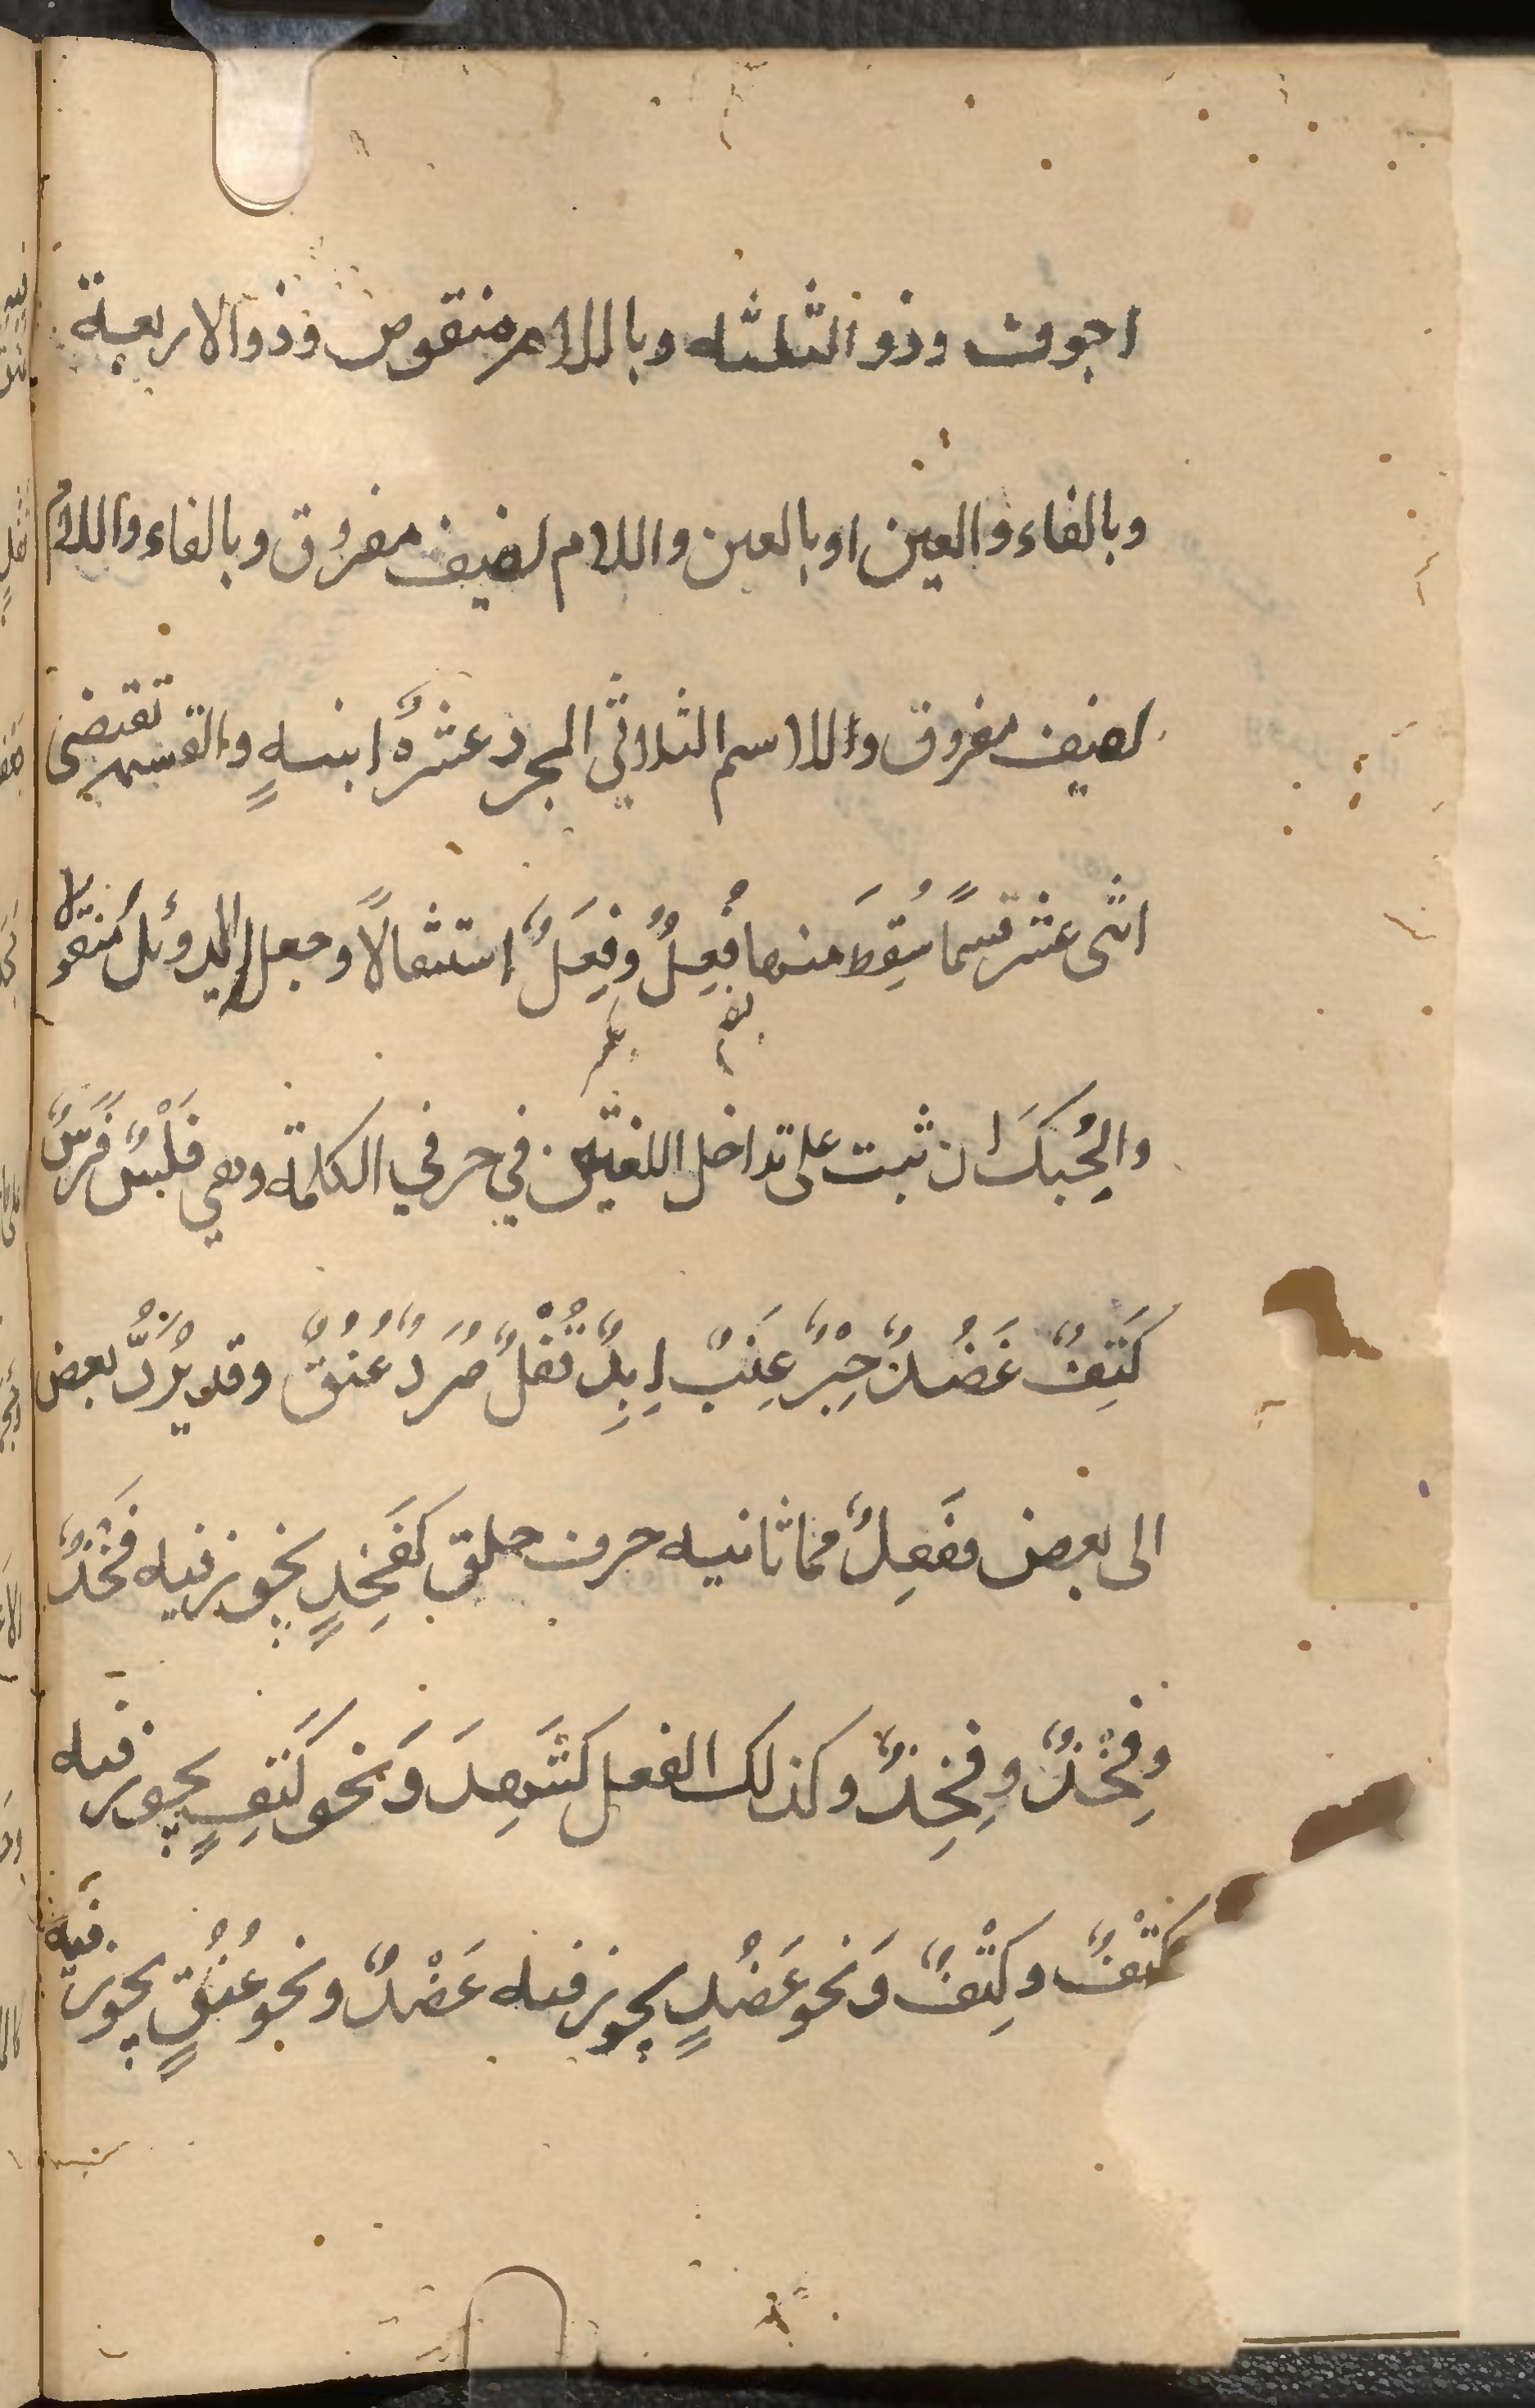 اجوف وذو الثلثة وباللام منقوص وذو الاربعة
وبالفاء والعين او بالعين واللام لفيف مفروق وبالفاء واللام
لفيف مفروق واللاسم الثلاثي المجرد عشرةُ ابنيةٍ والقسمه تقتضي
اثنى عشر قسمًا سُقِطَ منها فُعِلٌ وفِعُلٌ استثقالًا وجعل الدوئل منقولا
والحِبُكَ ان ثبت على تداخل اللغتين في حرفي الكلمة وهي فَلْسٌ فَرَسٌ
كَتِفٌ عَضُدٌ حِبْرٌ عِنَبٌ اِبِلٌ قُفْلٌ صُرَدٌ عُنُقٌ وقد يُرَدُّ بعض
الى بعض ففَعِلٌ مما ثانيه حرف حلق كفَخِذٍ يجوز فيه فَخْذٌ
وفِخْذٌ وفِخِذٌ وكذلك الفعل كشَهِدَ وَنحو كَتِفٍ يجوز فيه
كَتْفٌ وكِتْفٌ وَنحو عَضُدٍ يجوز فيه عَضْدٌ ونحو عُنُقٍ يجوز فيه